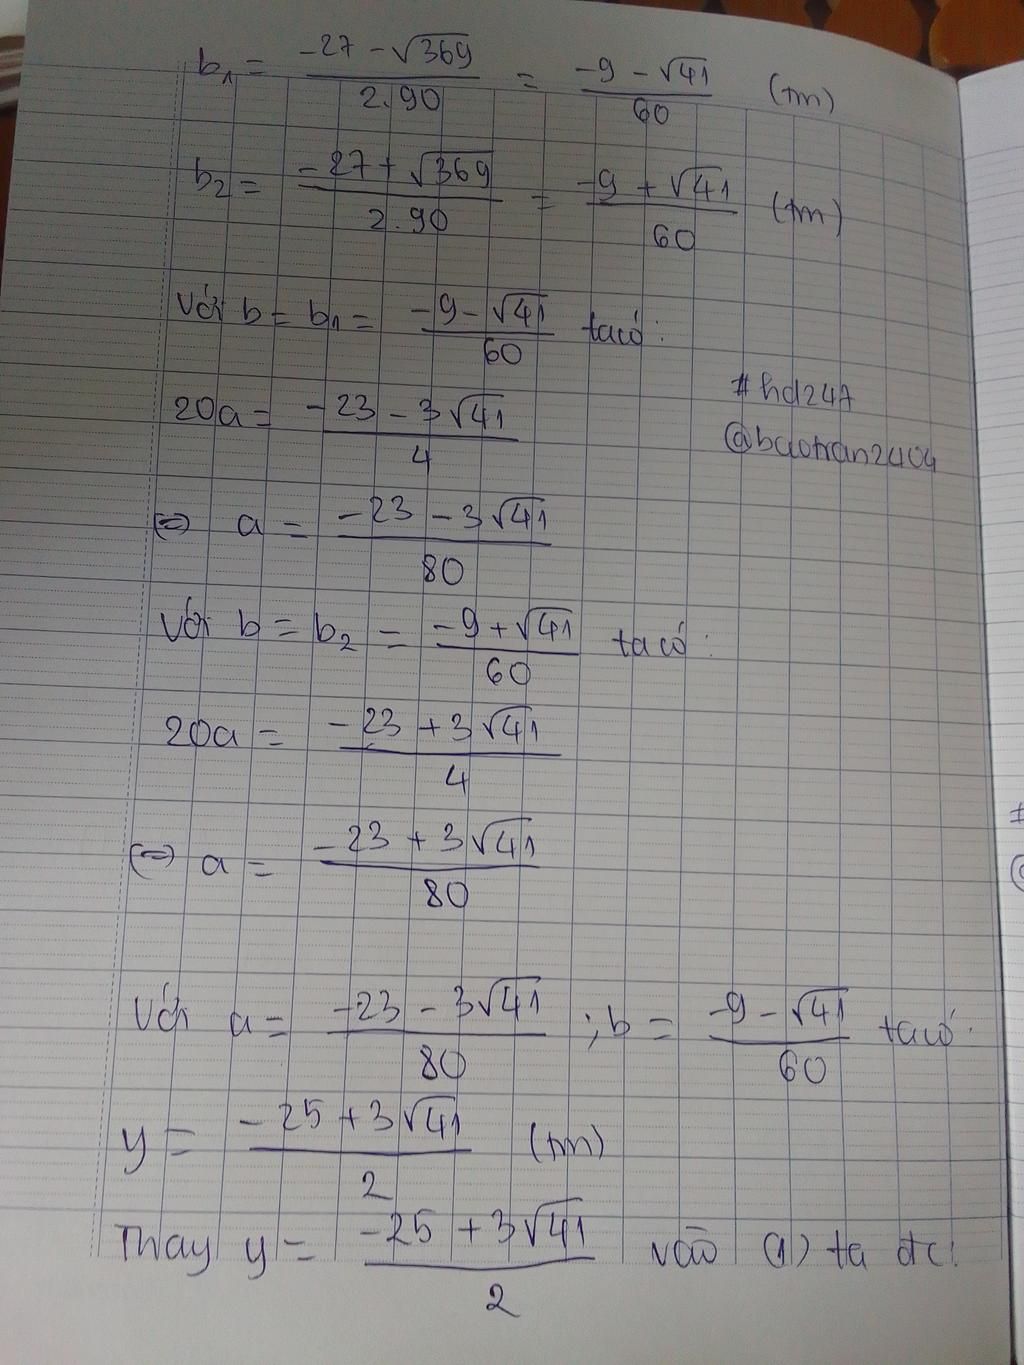 b₁ = (-27 - √369)/(2.90) = (-9 - √41)/60 (tm)
b₂ = (-27 + √369)/(2.90) = (-9 + √41)/60 (tm)
Với b = b₁ = (-9 - √41)/60 ta có:
20a = (-23 - 3√41)/4
#hd247
@baotran2404
⇔ a = (-23 - 3√41)/80
Với b = b₂ = (-9 + √41)/60 ta có:
20a = (-23 + 3√41)/4
⇔ a = (-23 + 3√41)/80
Với a = (-23 - 3√41)/80 ; b = (-9 - √41)/60 ta có:
y = (-25 + 3√41)/2 (tm)
Thay y = (-25 + 3√41)/2 vào (1) ta đc: